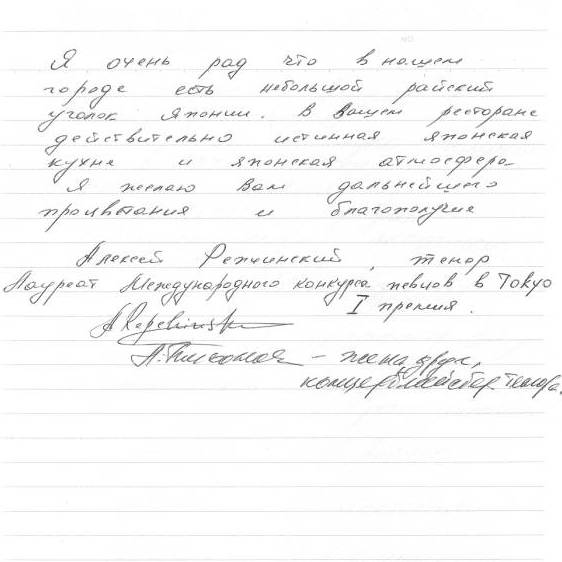 Я очень рад что в нашем
городе есть небольшой райский
уголок Японии. В Вашем ресторане
действительно истинная японская
кухне и японская атмосфера.
Я желаю Вам дальнейшего
процветания и благополучие
Алексей Репчинский, тенор
Лауреат Международного конкурса певцов в Tokyo
I премия.
ARepchinsk
– жена, друг,
концертмейстер тенора.